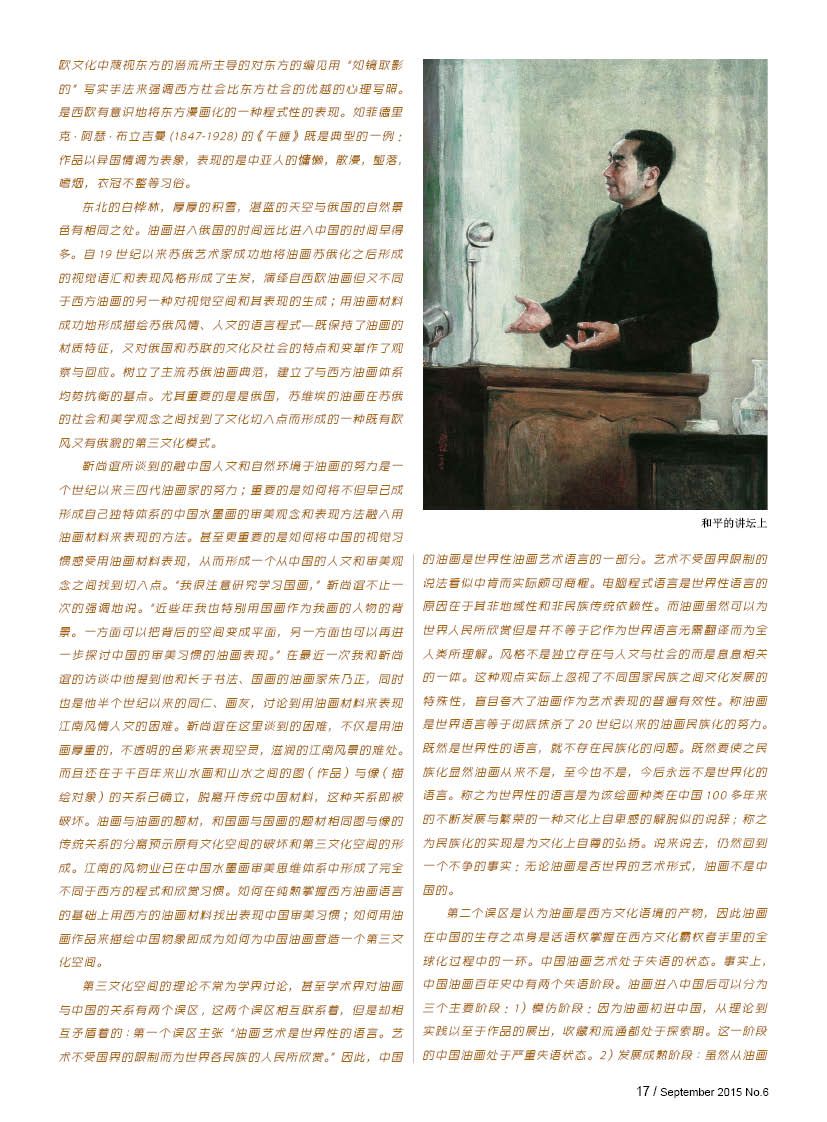 欧文化中蔑视东方的潜流所主导的对东方的偏见用“如镜取影
的”写实手法来强调西方社会比东方社会的优越的心理写照。
是西欧有意识地将东方漫画化的一种程式性的表现。如菲德里
克·阿瑟·布立吉曼(1847-1928)的《午睡》既是典型的一例；
作品以异国情调为表象，表现的是中亚人的慵懒，散漫，堕落，
嗜烟，衣冠不整等习俗。
东北的白桦林，厚厚的积雪，湛蓝的天空与俄国的自然景
色有相同之处。油画进入俄国的时间远比进入中国的时间早得
多。自19世纪以来苏俄艺术家成功地将油画苏俄化之后形成
的视觉语汇和表现风格形成了生发，演绎自西欧油画但又不同
于西方油画的另一种对视觉空间和其表现的生成；用油画材料
成功地形成描绘苏俄风情、人文的语言程式—既保持了油画的
材质特征，又对俄国和苏联的文化及社会的特点和变革作了观
察与回应。树立了主流苏俄油画典范，建立了与西方油画体系
均势抗衡的基点。尤其重要的是是俄国，苏维埃的油画在苏俄
的社会和美学观念之间找到了文化切入点而形成的一种既有欧
风又有俄貌的第三文化模式。
靳尚谊所谈到的融中国人文和自然环境于油画的努力是一
个世纪以来三四代油画家的努力；重要的是如何将不但早已成
形成自己独特体系的中国水墨画的审美观念和表现方法融入用
油画材料来表现的方法。甚至更重要的是如何将中国的视觉习
惯感受用油画材料表现，从而形成一个从中国的人文和审美观
念之间找到切入点。“我很注意研究学习国画，”靳尚谊不止一
次的强调地说。“近些年我也特别用国画作为我画的人物的背
景。一方面可以把背后的空间变成平面，另一方面也可以再进
一步探讨中国的审美习惯的油画表现。”在最近一次我和靳尚
谊的访谈中他提到他和长于书法、国画的油画家朱乃正，同时
也是他半个世纪以来的同仁、画友，讨论到用油画材料来表现
江南风情人文的困难。靳尚谊在这里谈到的困难，不仅是用油
画厚重的，不透明的色彩来表现空灵，滋润的江南风景的难处。
而且还在于千百年来山水画和山水之间的图（作品）与像（描
绘对象）的关系已确立，脱离开传统中国材料，这种关系即被
破坏。油画与油画的题材，和国画与国画的题材相同图与像的
传统关系的分离预示原有文化空间的破坏和第三文化空间的形
成。江南的风物业已在中国水墨画审美思维体系中形成了完全
不同于西方的程式和欣赏习惯。如何在纯熟掌握西方油画语言
的基础上用西方的油画材料找出表现中国审美习惯；如何用油
画作品来描绘中国物象即成为如何为中国油画营造一个第三文
化空间。
第三文化空间的理论不常为学界讨论，甚至学术界对油画
与中国的关系有两个误区，这两个误区相互联系着，但是却相
互矛盾着的：第一个误区主张“油画艺术是世界性的语言。艺
术不受国界的限制而为世界各民族的人民所欣赏。”因此，中国
和平的讲坛上
的油画是世界性油画艺术语言的一部分。艺术不受国界限制的
说法看似中肯而实际颇可商榷。电脑程式语言是世界性语言的
原因在于其非地域性和非民族传统依赖性。而油画虽然可以为
世界人民所欣赏但是并不等于它作为世界语言无需翻译而为全
人类所理解。风格不是独立存在与人文与社会的而是息息相关
的一体。这种观点实际上忽视了不同国家民族之间文化发展的
特殊性，盲目夸大了油画作为艺术表现的普遍有效性。称油画
是世界语言等于彻底抹杀了20世纪以来的油画民族化的努力。
既然是世界性的语言，就不存在民族化的问题。既然要使之民
族化显然油画从来不是，至今也不是，今后永远不是世界化的
语言。称之为世界性的语言是为该绘画种类在中国100多年来
的不断发展与繁荣的一种文化上自卑感的解脱似的说辞；称之
为民族化的实现是为文化上自尊的弘扬。说来说去，仍然回到
一个不争的事实：无论油画是否世界的艺术形式，油画不是中
国的。
第二个误区是认为油画是西方文化语境的产物，因此油画
在中国的生存之本身是话语权掌握在西方文化霸权者手里的全
球化过程中的一环。中国油画艺术处于失语的状态。事实上，
中国油画百年史中有两个失语阶段。油画进入中国后可以分为
三个主要阶段：1）模仿阶段：因为油画初进中国，从理论到
实践以至于作品的展出，收藏和流通都处于探索期。这一阶段
的中国油画处于严重失语状态。2）发展成熟阶段：虽然从油画
17 / September 2015 No.6